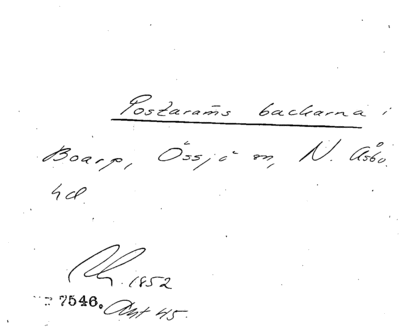 Postarams backarna i
Boarp, Össjö sn, N. Åsbo
hd
1852
7546. Akt 45.